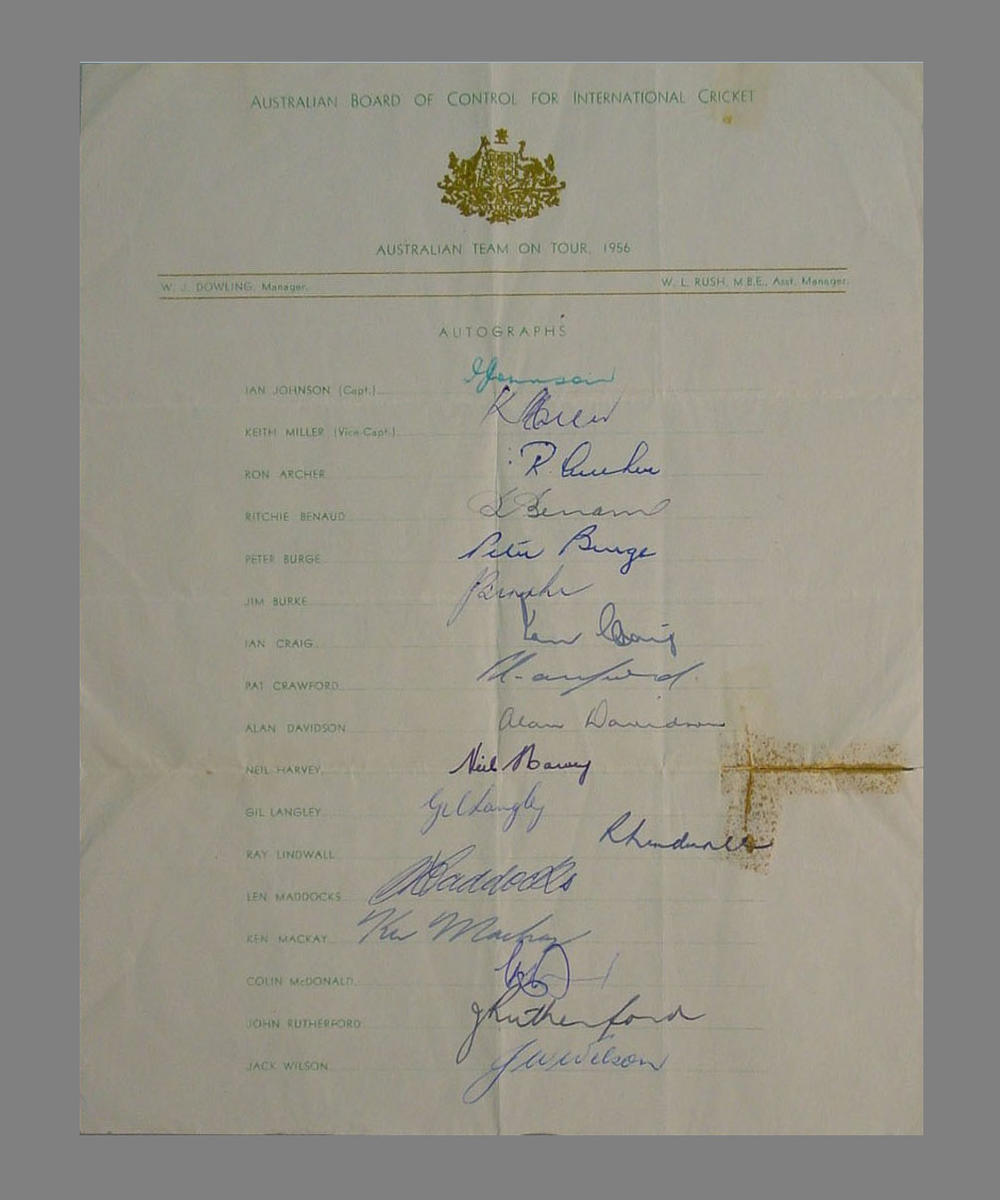 AUSTRALIAN BOARD OF CONTROL FOR INTERNATIONAL CRICKET
AUSTRALIAN TEAM ON TOUR, 1956
W. J. DOWLING, Manager. W. L. RUSH, M.B.E., Asst. Manager.
AUTOGRAPHS
IAN JOHNSON (Capt.) IJohnson
KEITH MILLER (Vice-Capt.)
RON ARCHER R. Archer
RITCHIE BENAUD R Benaud
PETER BURGE Peter Burge
JIM BURKE
IAN CRAIG Ian Craig
PAT CRAWFORD
ALAN DAVIDSON Alan Davidson
NEIL HARVEY Neil Harvey
GIL LANGLEY Gil Langley
RAY LINDWALL RLindwall
LEN MADDOCKS Maddocks
KEN MACKAY Ken Mackay
COLIN McDONALD
JOHN RUTHERFORD JRutherford
JACK WILSON J W Wilson